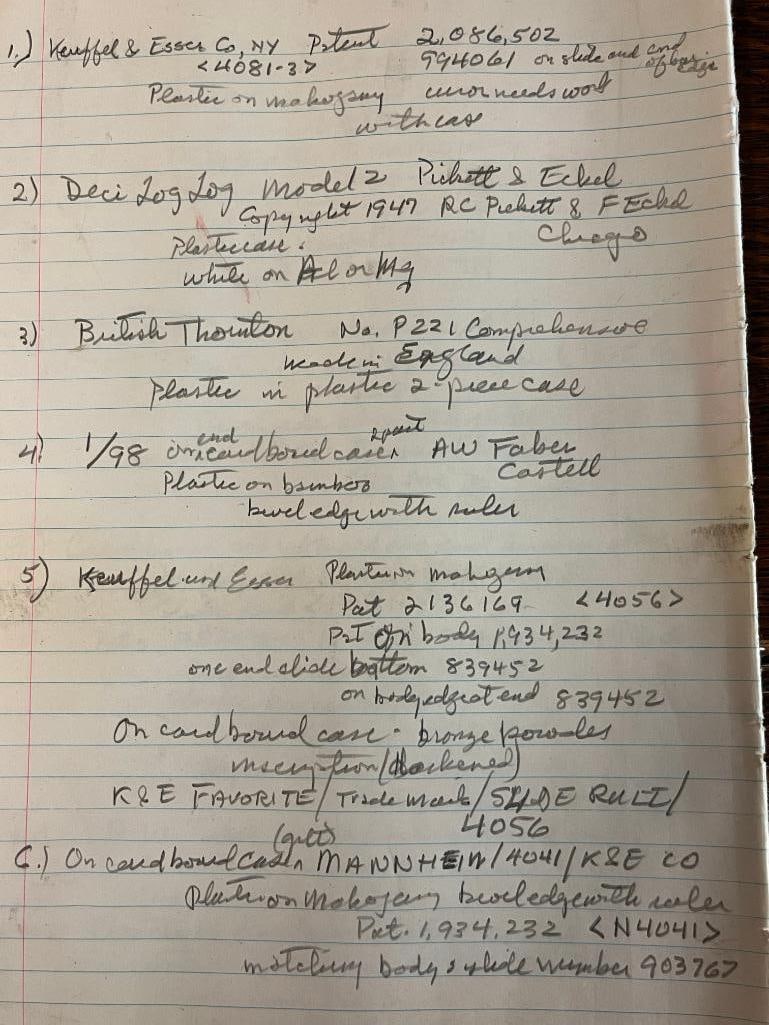 1.) Keuffel & Esser Co, NY Patent 2,086,502
<4081-3> 994061 on slide and end of body edge
Plastic on mahogany cursor needs work
with case
2) Deci Log Log Model 2 Pickett & Eckel
Copyright 1947 RC Pickett & F Eckel
Chicago
Plastic case.
white on Al or Mg
3) British Thornton No. P221 Comprehensive
made in England
Plastic in plastic 2-piece case
4) 1/98 on end cardboard case 2 part AW Faber
Castell
Plastic on bamboo
bevel edge with ruler
5) Keuffel und Esser Plastic on mahogany
Pat 2136169 <4056>
Pat on body 1,934,232
one end slide bottom 839452
on body edge at end 839452
On cardboard case - bronze powder
inscription (darkened)
K&E FAVORITE/Trade Mark/SLIDE RULE/
4056
6.) On cardboard case (gilt) MANNHEIM/4041/K&E CO
Plastic on Mahogany bevel edge with ruler
Pat. 1,934,232 <N4041>
matching body & slide number 903767